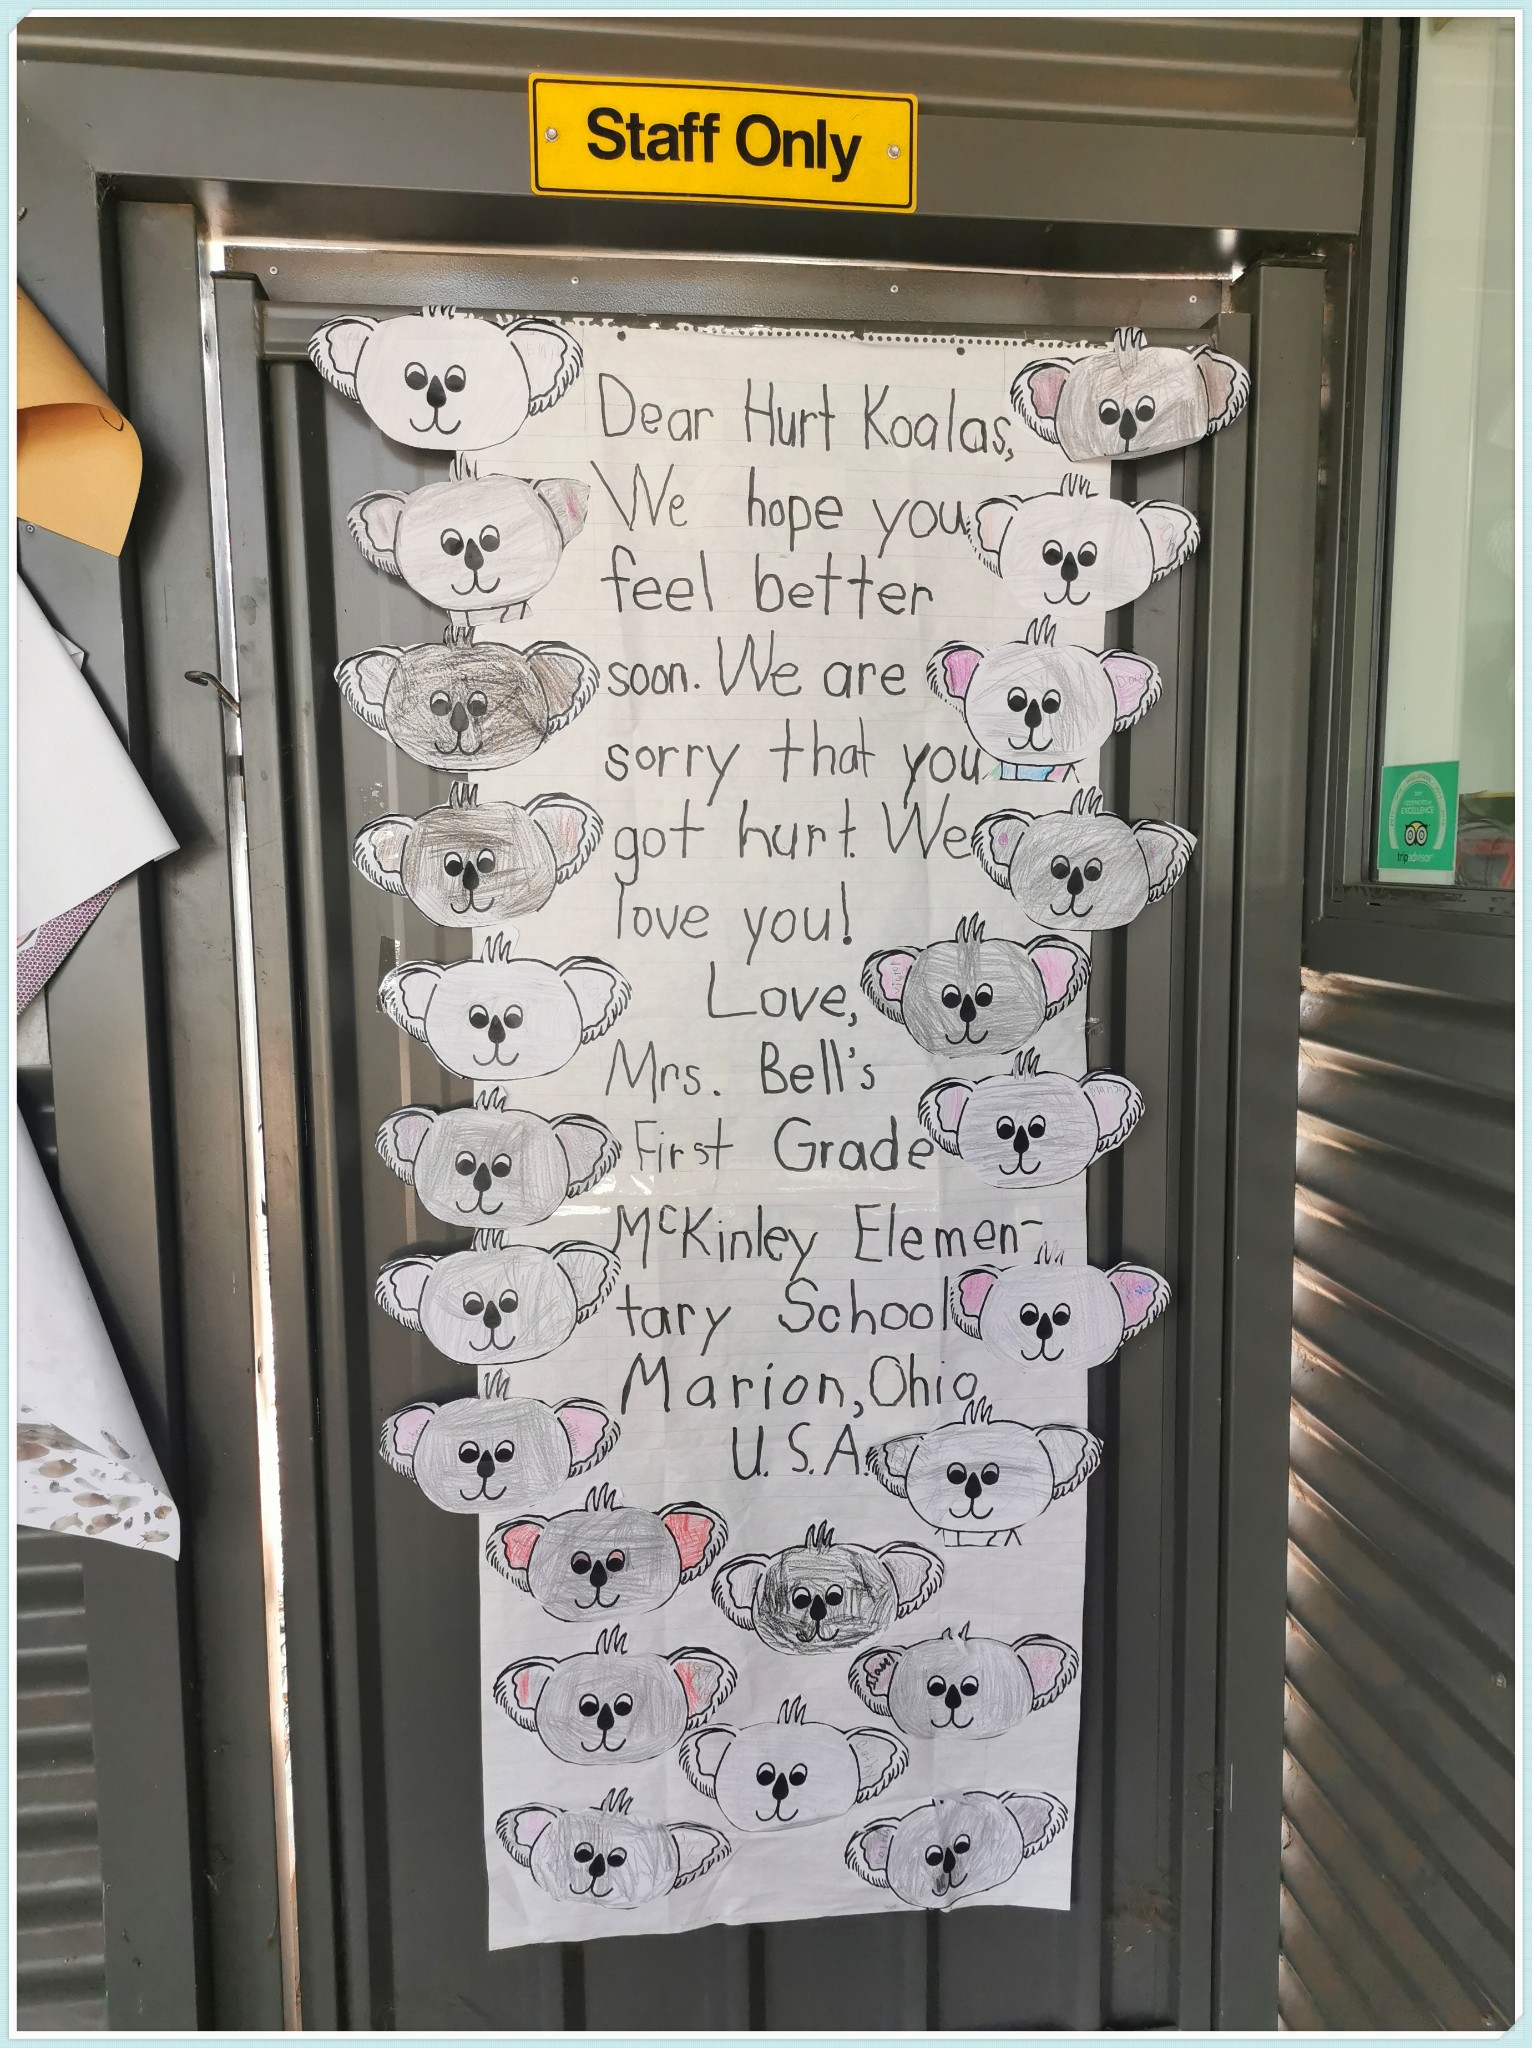 Staff Only
Dear Hurt Koalas,
We hope you
feel better
soon. We are
sorry that you
got hurt. We
love you!
Love,
Mrs. Bell's
First Grade
McKinley Elemen-
tary School
Marion, Ohio
U.S.A.
EXCELLENCE
tripadvisor